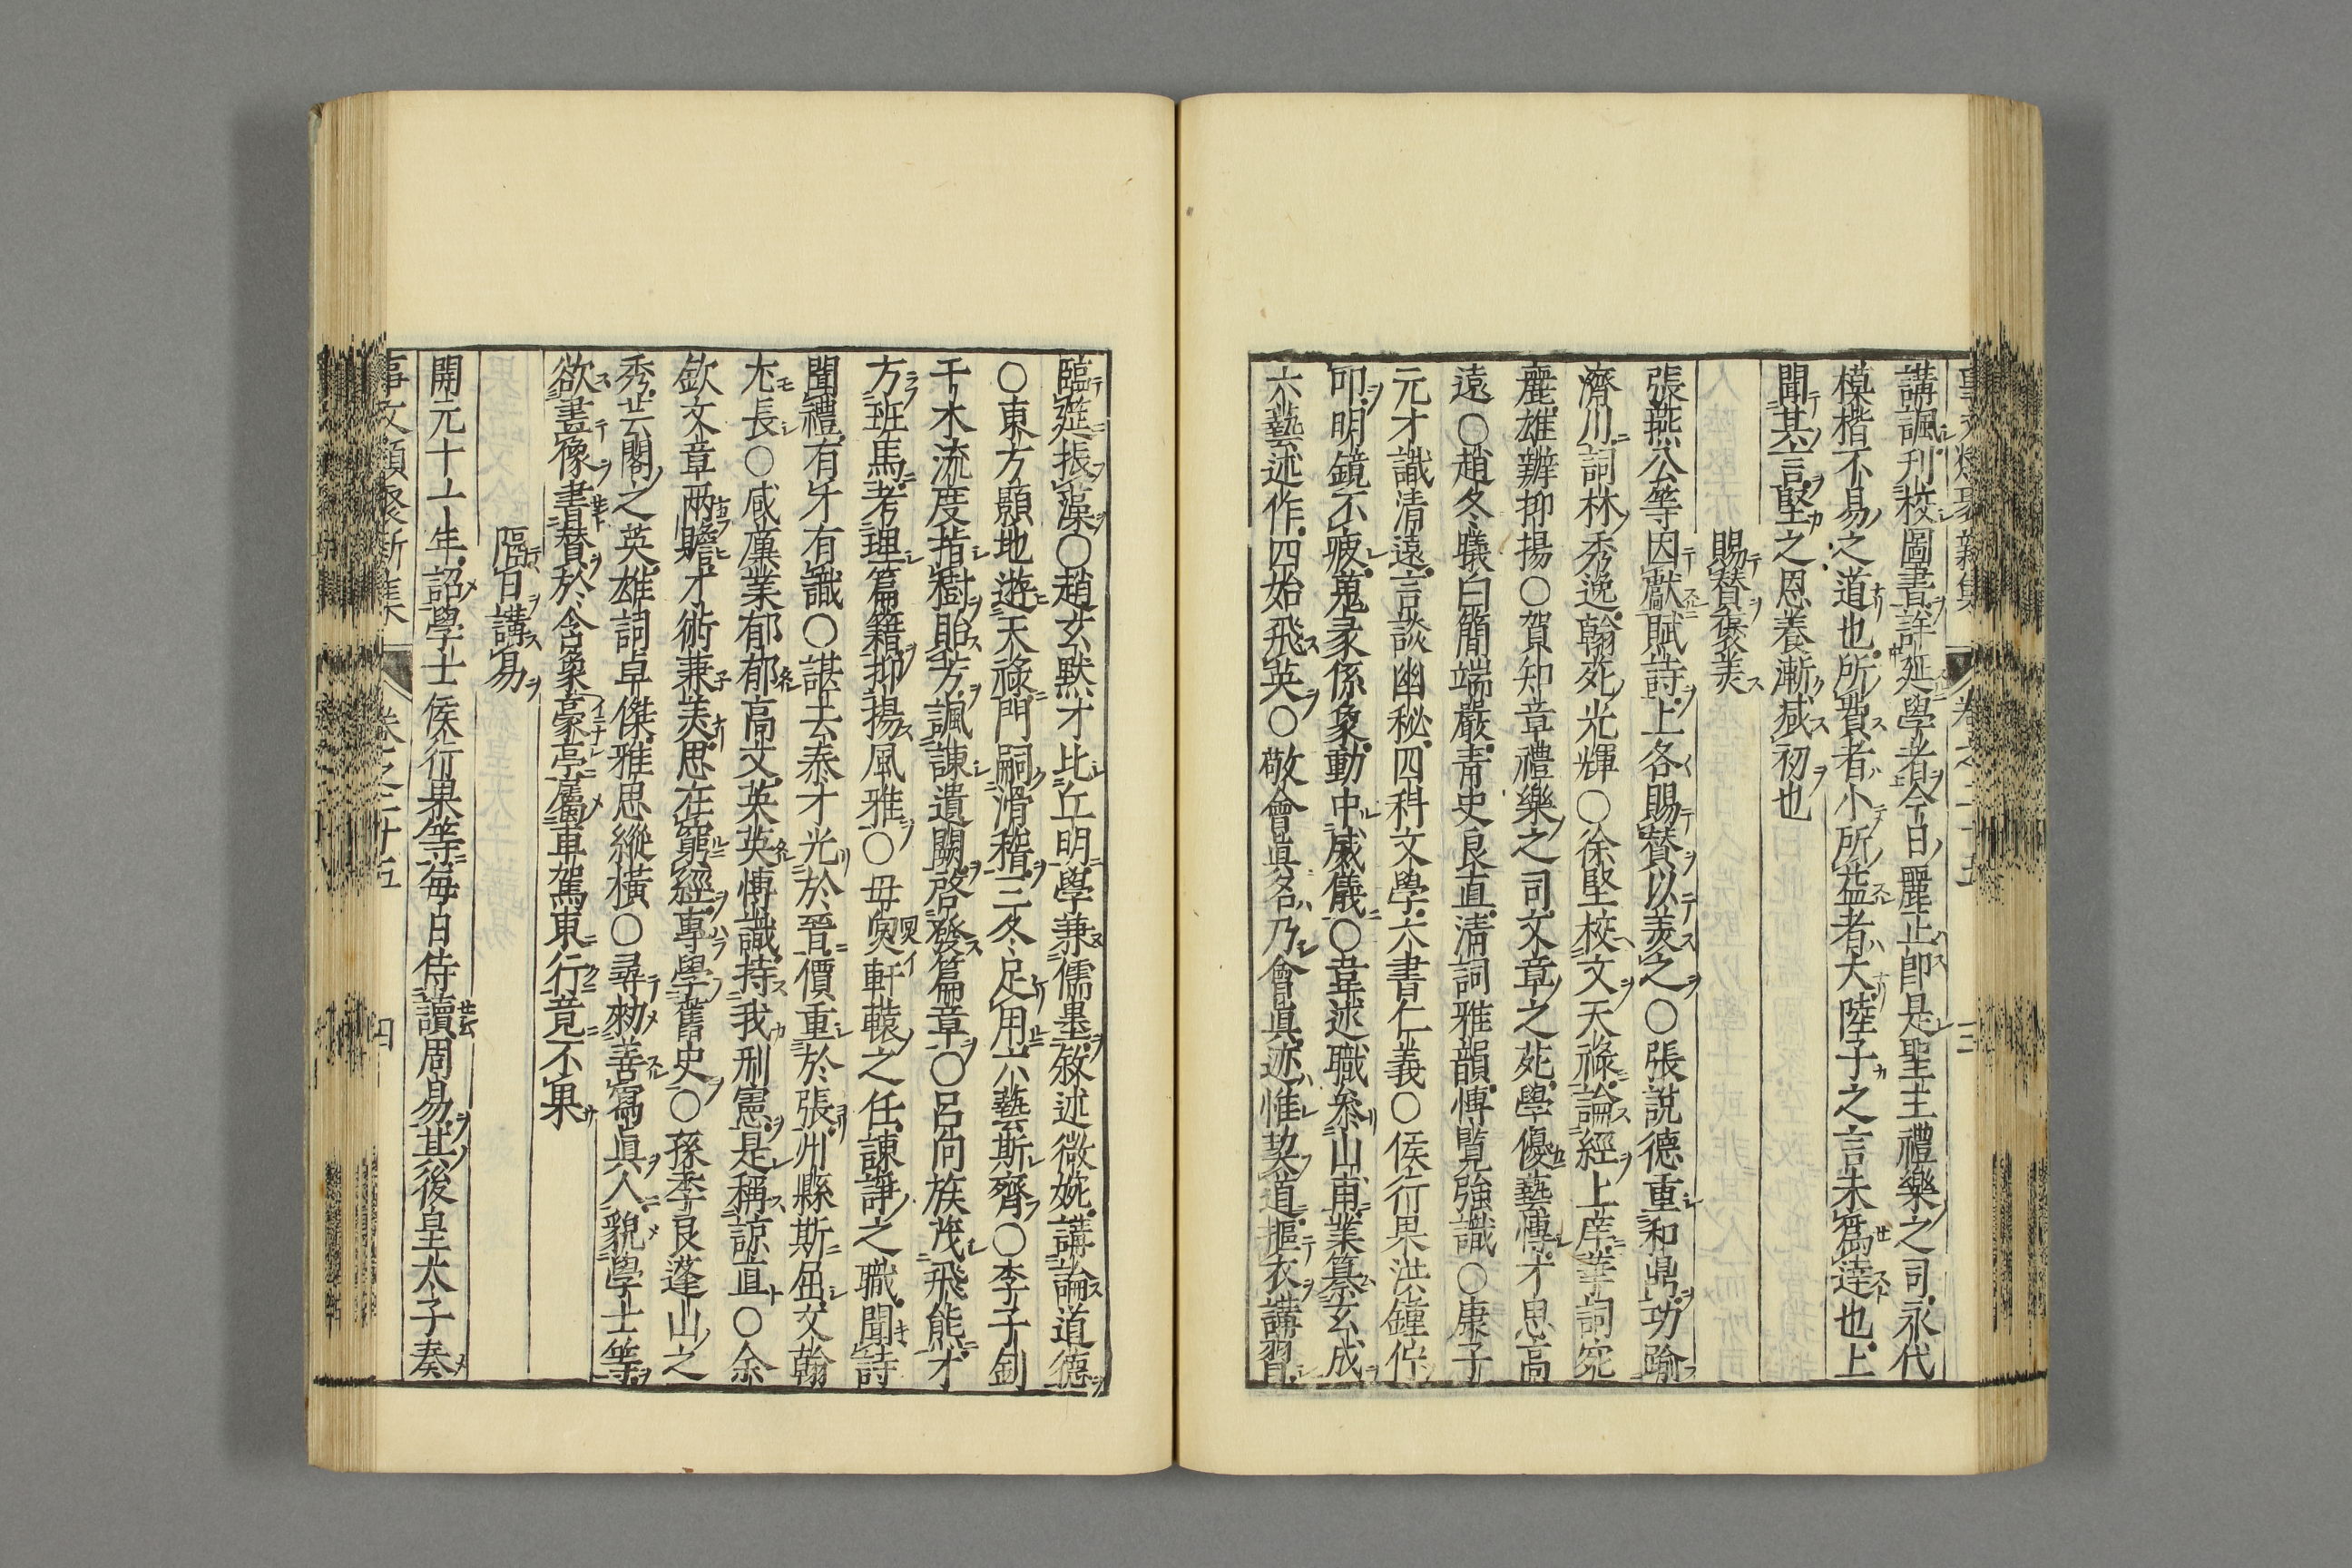 講諷刋校圖書許延學者今日麗正即是聖主禮樂之司永代
模楷不易之道也所費者小所益者大陸子之言未爲達也上
聞其言堅之恩養漸减初也
賜贊褒美
張燕公等因獻賦詩上各賜贊以美之○張說德重和鼎功踰
濟川詞林秀逸翰苑光輝○徐堅校文天祿論經上庠英詞宛
麗雄辯抑揚○賀知章禮樂之司文章之苑學優藝博才思高
遠○趙冬曦白簡端嚴青史良直清詞雅韻博覧強識○康子
元才識清遠言談幽秘四科文學六書仁義○侯行果洪鐘佇
叩明鏡不疲蒐彖係象動中威儀○韋述職參山甫業纂玄成
六藝述作四始飛英○敬會真名乃會真迹惟契道摳衣講習
臨筵振藻○趙玄默才比丘明學兼儒墨敘述微婉講論道德
○東方顥地遊天祿門嗣滑稽三冬足用六藝斯齊○李子釗
千木流度指樹貽芳諷諫遺闕啓發篇章○呂向族茂飛熊才
方班馬考理篇籍抑揚風雅○毋煚軒轅之任諫諍之職聞詩
聞禮有才有識○諶去泰才光於晉價重於張州縣斯屈文翰
尤長○咸廙業郁郁高文英英博識持我刑憲是稱諒直○余
欽文章兩贍才術兼美思在窮經專學舊史○孫季良蓬山之
秀芸閣之英雄詞卓傑雅思縱橫○尋勑善寫真人貌學士等
欲畫像書贊於含象亭屬車駕東行竟不果
隔日講易
開元十一年詔學士侯行果等每日侍讀周易其後皇太子奏
事文類聚新集 卷之二十五 四